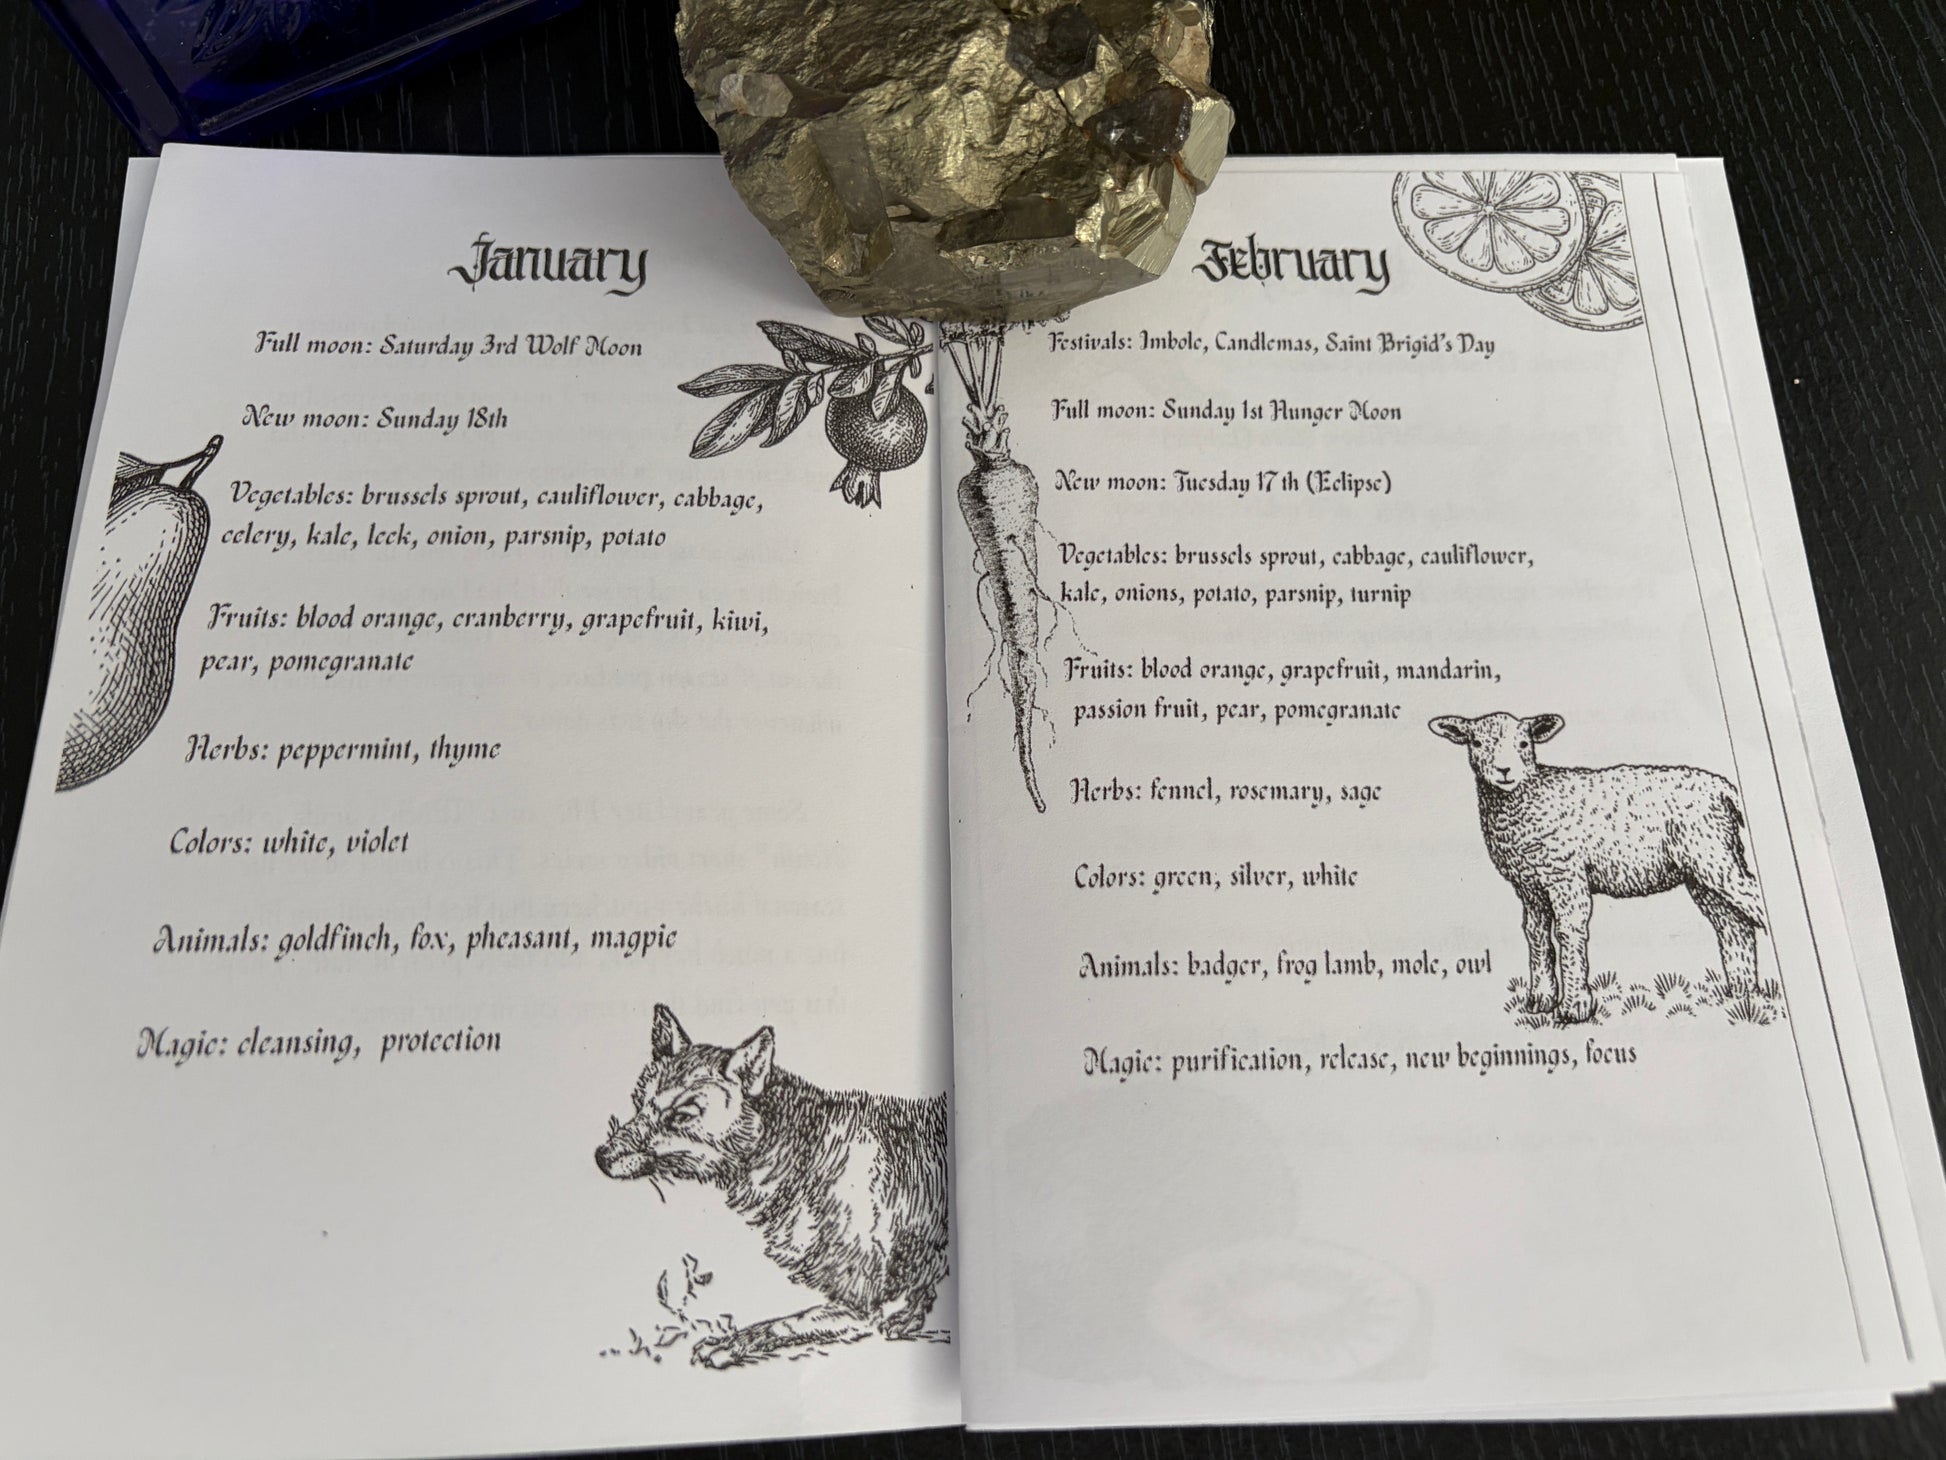 January
Full moon: Saturday 3rd Wolf Moon
New moon: Sunday 18th
Vegetables: brussels sprout, cauliflower, cabbage,
celery, kale, leek, onion, parsnip, potato
Fruits: blood orange, cranberry, grapefruit, kiwi,
pear, pomegranate
Herbs: peppermint, thyme
Colors: white, violet
Animals: goldfinch, fox, pheasant, magpie
Magic: cleansing, protection
February
Festivals: Imbolc, Candlemas, Saint Brigid's Day
Full moon: Sunday 1st Hunger Moon
New moon: Tuesday 17th (Eclipse)
Vegetables: brussels sprout, cabbage, cauliflower,
kale, onions, potato, parsnip, turnip
Fruits: blood orange, grapefruit, mandarin,
passion fruit, pear, pomegranate
Herbs: fennel, rosemary, sage
Colors: green, silver, white
Animals: badger, frog lamb, mole, owl
Magic: purification, release, new beginnings, focus